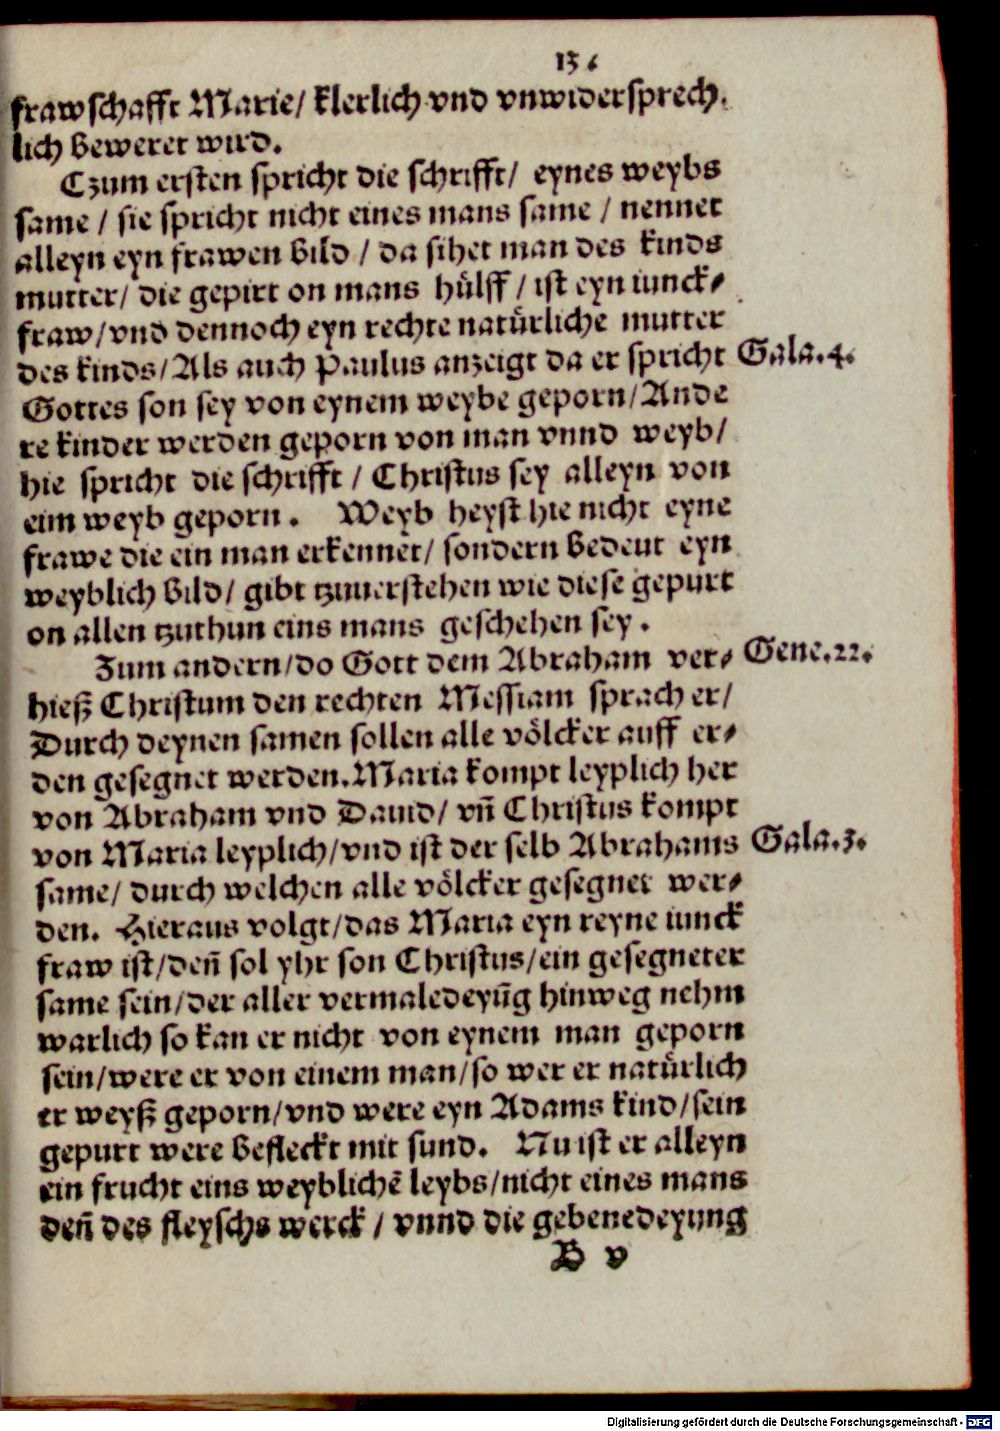 13.
frawschafft Marie/ klerlich vnd vnwidersprech.
lich beweret wird.
Czum ersten spricht die schrifft/ eynes weybs
same / sie spricht nicht eines mans same / nennet
alleyn eyn frawen bild / da sihet man des kinds
mutter/ die gepirt on mans hülff / ist eyn iunck⸗
fraw/vnd dennoch eyn rechte natürliche mutter
des kinds/Als auch Paulus anzeigt da er spricht Gala.4.
Gottes son sey von eynem weybe geporn/Ande
re kinder werden geporn von man vnnd weyb/
hie spricht die schrifft / Christus sey alleyn von
eim weyb geporn. Weyb heyst hie nicht eyne
frawe die ein man erkennet/ sondern bedeut eyn
weyblich bild/ gibt tzuuerstehen wie diese gepurt
on allen tzuthun eins mans geschehen sey.
Zum andern/do Gott dem Abraham ver⸗ Gene.22.
hieß Christum den rechten Messiam sprach er/
Durch deynen samen sollen alle völcker auff er⸗
den gesegnet werden.Maria kompt leyplich her
von Abraham vnd Dauid/ vñ Christus kompt
von Maria leyplich/vnd ist der selb Abrahams Gala.3.
same/ durch welchen alle völcker gesegnet wer⸗
den. Hieraus volgt/das Maria eyn reyne iunck
fraw ist/deñ sol yhr son Christus/ein gesegneter
same sein/der aller vermaledeyūg hinweg nehm
warlich so kan er nicht von eynem man geporn
sein/were er von einem man/so wer er natürlich
er weyß geporn/vnd were eyn Adams kind/sein
gepurt were befleckt mit sund. Nu ist er alleyn
ein frucht eins weyblichē leybs/nicht eines mans
deñ des fleyschs werck / vnnd die gebenedeyung
B v
Digitalisierung gefördert durch die Deutsche Forschungsgemeinschaft - DFG